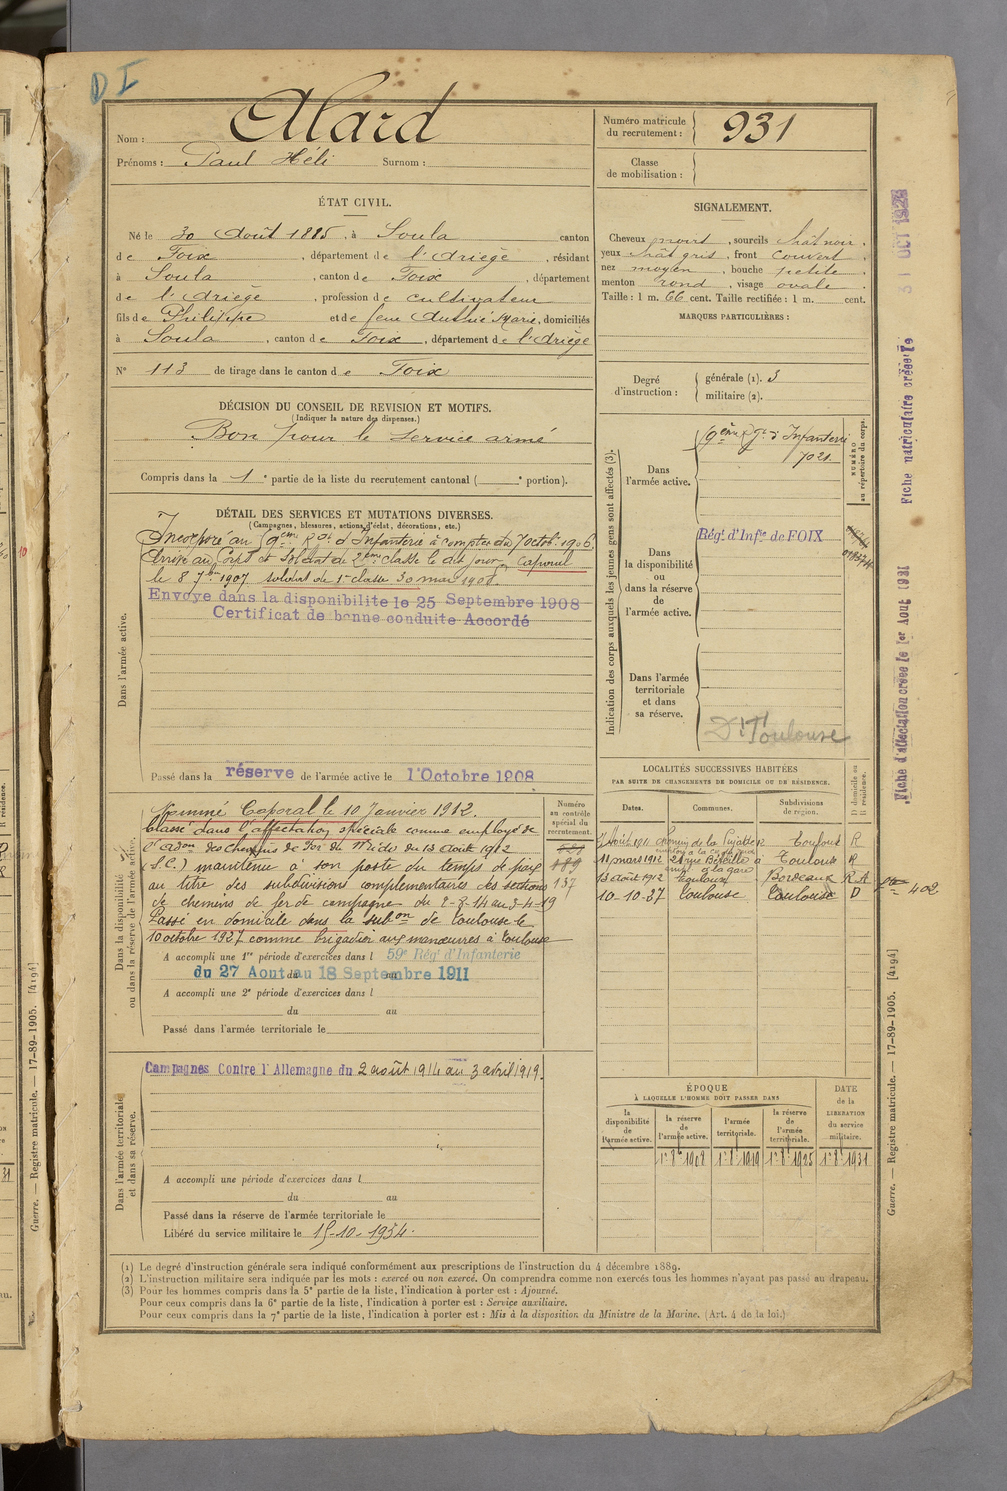 D I
Nom : Alard
Prénoms : Paul Héli Surnom :
Numéro matricule du recrutement : 931
Classe de mobilisation :
ÉTAT CIVIL.
Né le 30 Août 1885, à Soula canton
de Foix, département de l'Ariège, résidant
à Soula, canton de Foix, département
de l'Ariège, profession de cultivateur
fils de Philippe et de feue Authié Marie, domiciliés
à Soula, canton de Foix, département de l'Ariège
N° 113 de tirage dans le canton de Foix
SIGNALEMENT.
Cheveux noirs, sourcils chât noir.
yeux chât gris, front couvert.
nez moyen, bouche petite.
menton rond, visage ovale.
Taille : 1 m. 66 cent. Taille rectifiée : 1 m. cent.
MARQUES PARTICULIÈRES :
Degré d'instruction : générale (1). 3
militaire (2).
DÉCISION DU CONSEIL DE REVISION ET MOTIFS.
(Indiquer la nature des dispenses.)
Bon pour le service armé
Compris dans la 1e partie de la liste du recrutement cantonal ( e portion).
DÉTAIL DES SERVICES ET MUTATIONS DIVERSES.
(Campagnes, blessures, actions d'éclat, décorations, etc.)
Dans l'armée active.
Incorporé au 59ème Rgt d'Infanterie à compter du 7 octobre 1906.
Arrivé au Corps et Soldat de 2ème classe le dit jour. Caporal
le 8 7bre 1907 soldat de 1e classe 30 mai 1908.
Envoye dans la disponibilite le 25 Septembre 1908
Certificat de bonne conduite Accordé
Passé dans la réserve de l'armée active le 1'Octobre 1908
Indication des corps auxquels les jeunes gens sont affectés (3).
Dans l'armée active.
59ème Rgt d'Infanterie
7021
NUMÉRO au répertoire du corps.
Dans la disponibilité ou dans la réserve de l'armée active.
Régt d'Infie de FOIX
Dans l'armée territoriale et dans sa réserve.
Dt Toulouse
Dans la disponibilité ou dans la réserve de l'armée active.
Nommé Caporal le 10 Janvier 1912.
Classé dans l'affectation spéciale comme employé de
l'adon des Chemins de Fer du Midi du 13 Août 1912
(S.C.) maintenu à son poste du temps de paix
au titre des subdivisions complémentaires des sections
de chemins de fer de campagne du 2-8-14 au 3-4-19
Passé en domicile dans la subon de Toulouse le
10 octobre 1927 comme brigadier aux manœuvres à Toulouse
A accompli une 1re période d'exercices dans l 59e Régt d'Infanterie
du 27 Aout au 18 Septembre 1911
A accompli une 2e période d'exercices dans l
du au
Passé dans l'armée territoriale le
Numéro au contrôle spécial du recrutement.
189
137
LOCALITÉS SUCCESSIVES HABITÉES
PAR SUITE DE CHANGEMENTS DE DOMICILE OU DE RÉSIDENCE.
Dates. Communes. Subdivisions de région. D domicile ou R résidence.
Toulouse R
11 mars 1912 Toulouse R
13 août 1912 Toulouse Bordeaux R A
10-10-27 Toulouse Toulouse D
402
Dans l'armée territoriale et dans sa réserve.
Campagnes Contre l'Allemagne du 2 août 1914 au 3 avril 1919.
A accompli une période d'exercices dans l
du au
Passé dans la réserve de l'armée territoriale le
Libéré du service militaire le 15-10-1934.
ÉPOQUE
À LAQUELLE L'HOMME DOIT PASSER DANS
la disponibilité de l'armée active.
la réserve de l'armée active.
l'armée territoriale.
la réserve de l'armée territoriale.
DATE de la LIBÉRATION du service militaire.
1r 8bre 1908 1r 8bre 1919 1r 8bre 1925 1r 8bre 1931
(1) Le degré d'instruction générale sera indiqué conformément aux prescriptions de l'instruction du 4 décembre 1889.
(2) L'instruction militaire sera indiquée par les mots : exercé ou non exercé. On comprendra comme non exercés tous les hommes n'ayant pas passé au drapeau.
(3) Pour les hommes compris dans la 5e partie de la liste, l'indication à porter est : Ajourné.
Pour ceux compris dans la 6e partie de la liste, l'indication à porter est : Service auxiliaire.
Pour ceux compris dans la 7e partie de la liste, l'indication à porter est : Mis à la disposition du Ministre de la Marine. (Art. 4 de la loi.)
Fiche matriculaire créée le 31 OCT 1928
Fiche d'affectation créée le 1er Aout 1931
Guerre. — Registre matricule. — 17-89-1905. [4194]
Guerre. — Registre matricule. — 17-89-1905. [4194]